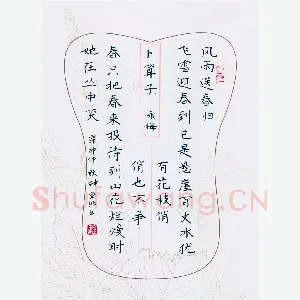 卜算子 咏梅
风雨送春归
飞雪迎春到已是悬崖百丈冰犹
有花枝俏
俏也不争
春只把春来报待到山花烂漫时
她在丛中笑
Shufawang.CN